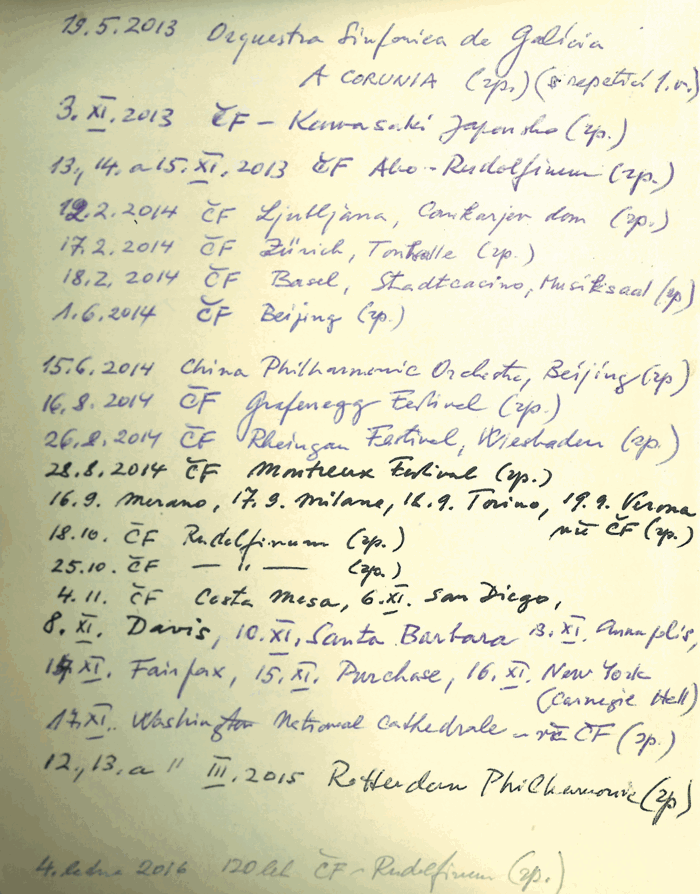 19.5.2013 Orquestra Sinfonica de Galícia
A CORUNIA (zp.) (s repeticí 1.v.)
3. XI. 2013 ČF - Kawasaki Japonsko (zp.)
13., 14. a 15. XI. 2013 ČF Abo - Rudolfinum (zp.)
12.2.2014 ČF Ljubljana, Cankarjev dom (zp.)
17.2.2014 ČF Zürich, Tonhalle (zp.)
18.2.2014 ČF Basel, Stadtcasino, Musiksaal (zp)
1.6.2014 ČF Beijing (zp.)
15.6.2014 China Philharmonic Orchestra, Beijing (zp)
16.8.2014 ČF Grafenegg Festival (zp.)
26.8.2014 ČF Rheingau Festival, Wiesbaden (zp.)
28.8.2014 ČF Montreux Festival (zp.)
16.9. Merano, 17.9. Milano, 18.9. Torino, 19.9. Verona
vše ČF (zp.)
18.10. ČF Rudolfinum (zp.)
25.10. ČF — " — (zp.)
4.11. ČF Costa Mesa, 6.XI. San Diego,
8. XI. Davis, 10. XI. Santa Barbara 13. XI. Annapolis,
14. XI. Fairfax, 15. XI. Purchase, 16. XI. New York
(Carnegie Hall)
17. XI. Washington National Cathedrale - vše ČF (zp.)
12., 13. a " III. 2015 Rotterdam Philharmonic (zp)
4. ledna 2016 120 let ČF - Rudolfinum (zp.)